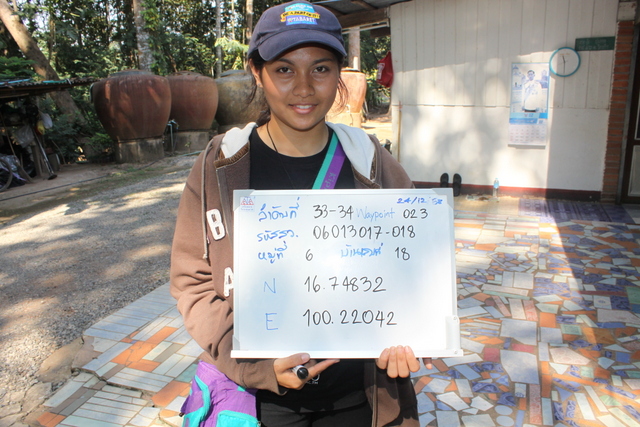 24/12/52
ลำดับที่ 33-34 Waypoint 023
รหัสรว. 06013017-018
หมู่ที่ 6 บ้านเลขที่ 18
N 16.74832
E 100.22042